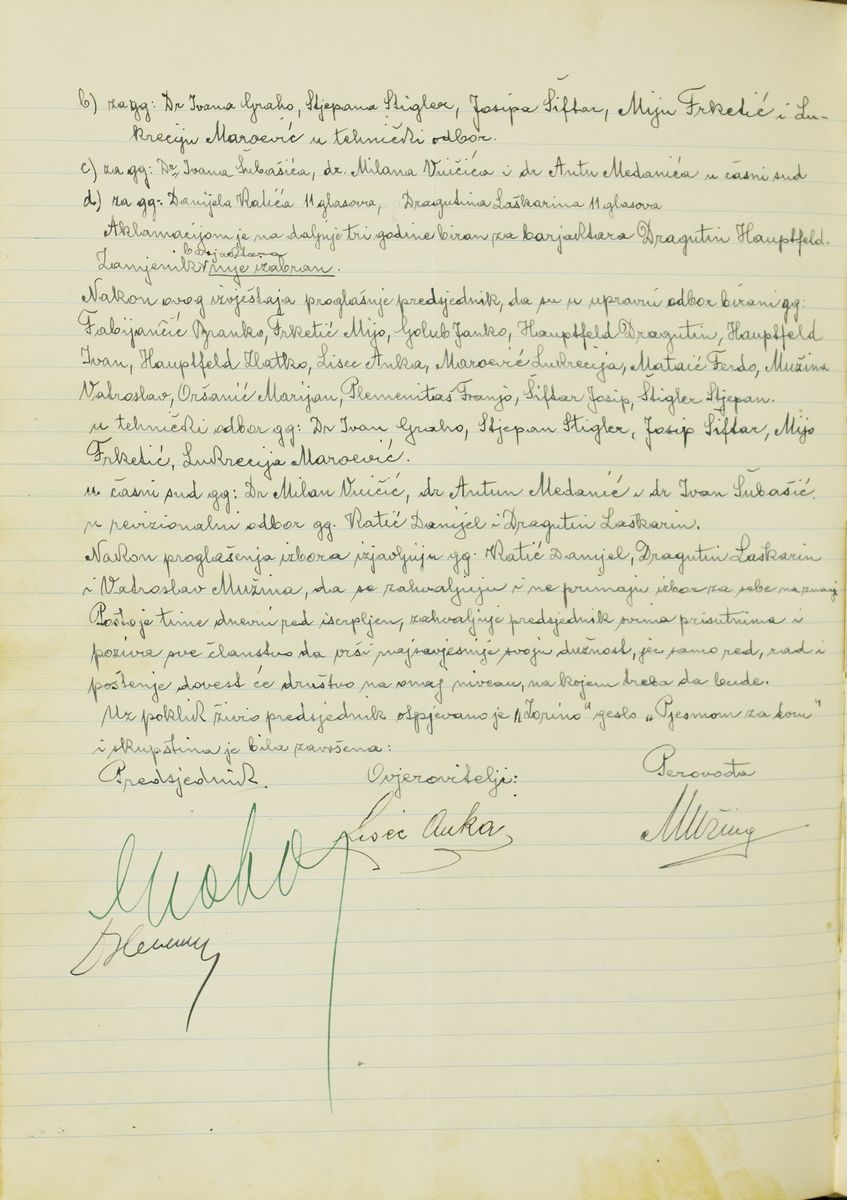 b) za gg: Dr Ivana Graho, Stjepana Štigler, Josipa Šiftar, Miju Frketić i Lu-
kreciju Maroević u tehnički odbor.
c) za gg: Dr, Ivana Šubašića, dr. Milana Vuičića i dr Antu Medanića u časni sud
d.) za gg: Danijela Katića 11 glasova, Dragutina Laškarina 11 glasova
Aklamacijom je na daljnje tri godine biran za barjaktara Dragutin Hauptfeld.
barjaktara
Zamjenik nije izabran.
Nakon ovog izvještaja proglašuje predsjednik, da su u upravni odbor birani gg:
Fabijančić Branko, Frketić Mijo, Golub Janko, Hauptfeld Dragutin, Hauptfeld
Ivan, Hauptfeld Zlatko, Lisec Anka, Maroević Lukrecija, Mataić Ferdo, Mužina
Vatroslav, Oršanić Marijan, Plemenitaš Franjo, Šiftar Josip, Štigler Stjepan.
u tehnički odbor gg: Dr Ivan Graho, Stjepan Štigler, Josip Šiftar, Mijo
Frketić, Lukrecija Maroević.
u časni sud gg: Dr Milan Vuičić, dr Antun Medanić i dr Ivan Šubašić.
u revizionalni odbor gg. Katić Danijel i Dragutin Laskarin.
Nakon proglašenja izbora izjavljuju gg: Katić Danijel, Dragutin Laskarin
i Vatroslav Mužina, da se zahvaljuju i ne primaju izbor za sebe
Pošto je time dnevni red iscrpljen, zahvaljuje predsjednik svima prisutnima i
poziva sve članstvo da vrši najsavjesnije svoju dužnost, jer samo red, rad i
poštenje dovest će društvo na onaj niveau, na kojem treba da bude.
Uz poklik živio predsjednik otpjevano je „Zorino" geslo „Pjesmom za dom"
i skupština je bila završena:
Predsjednik. Ovjerovitelji: Perovođa
Lisec Anka Mužina
Graho